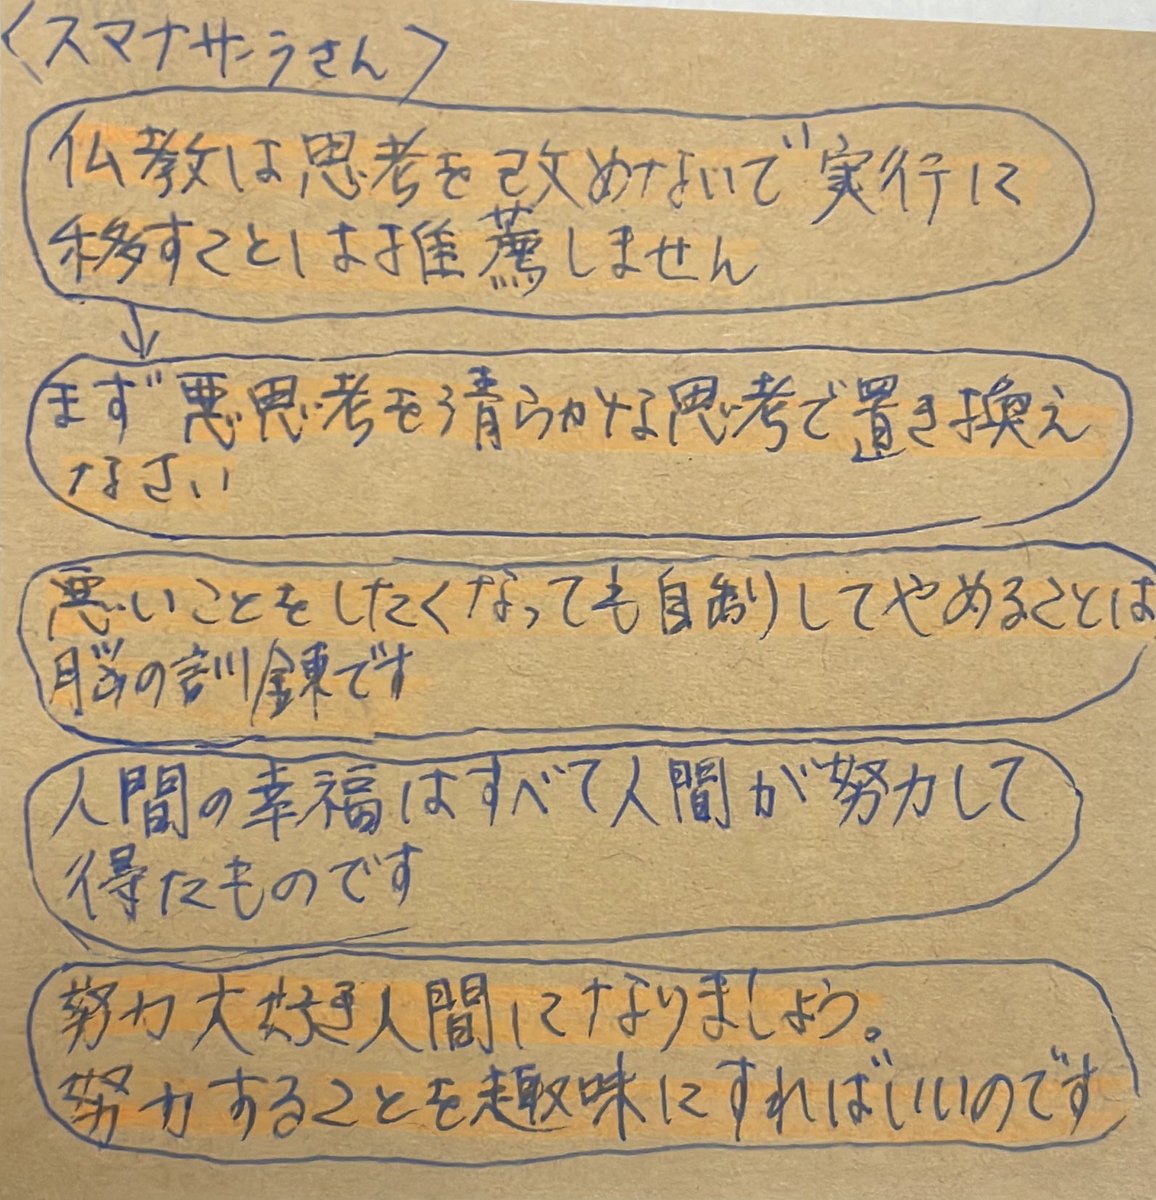 〈スマナサーラさん〉
仏教は思考を改めないで実行に
移すことは推薦しません
↓
まず悪思考を清らかな思考で置き換え
なさい
悪いことをしたくなっても自制してやめることは
脳の訓練です
人間の幸福はすべて人間が努力して
得たものです
努力大好き人間になりましょう。
努力することを趣味にすればいいのです